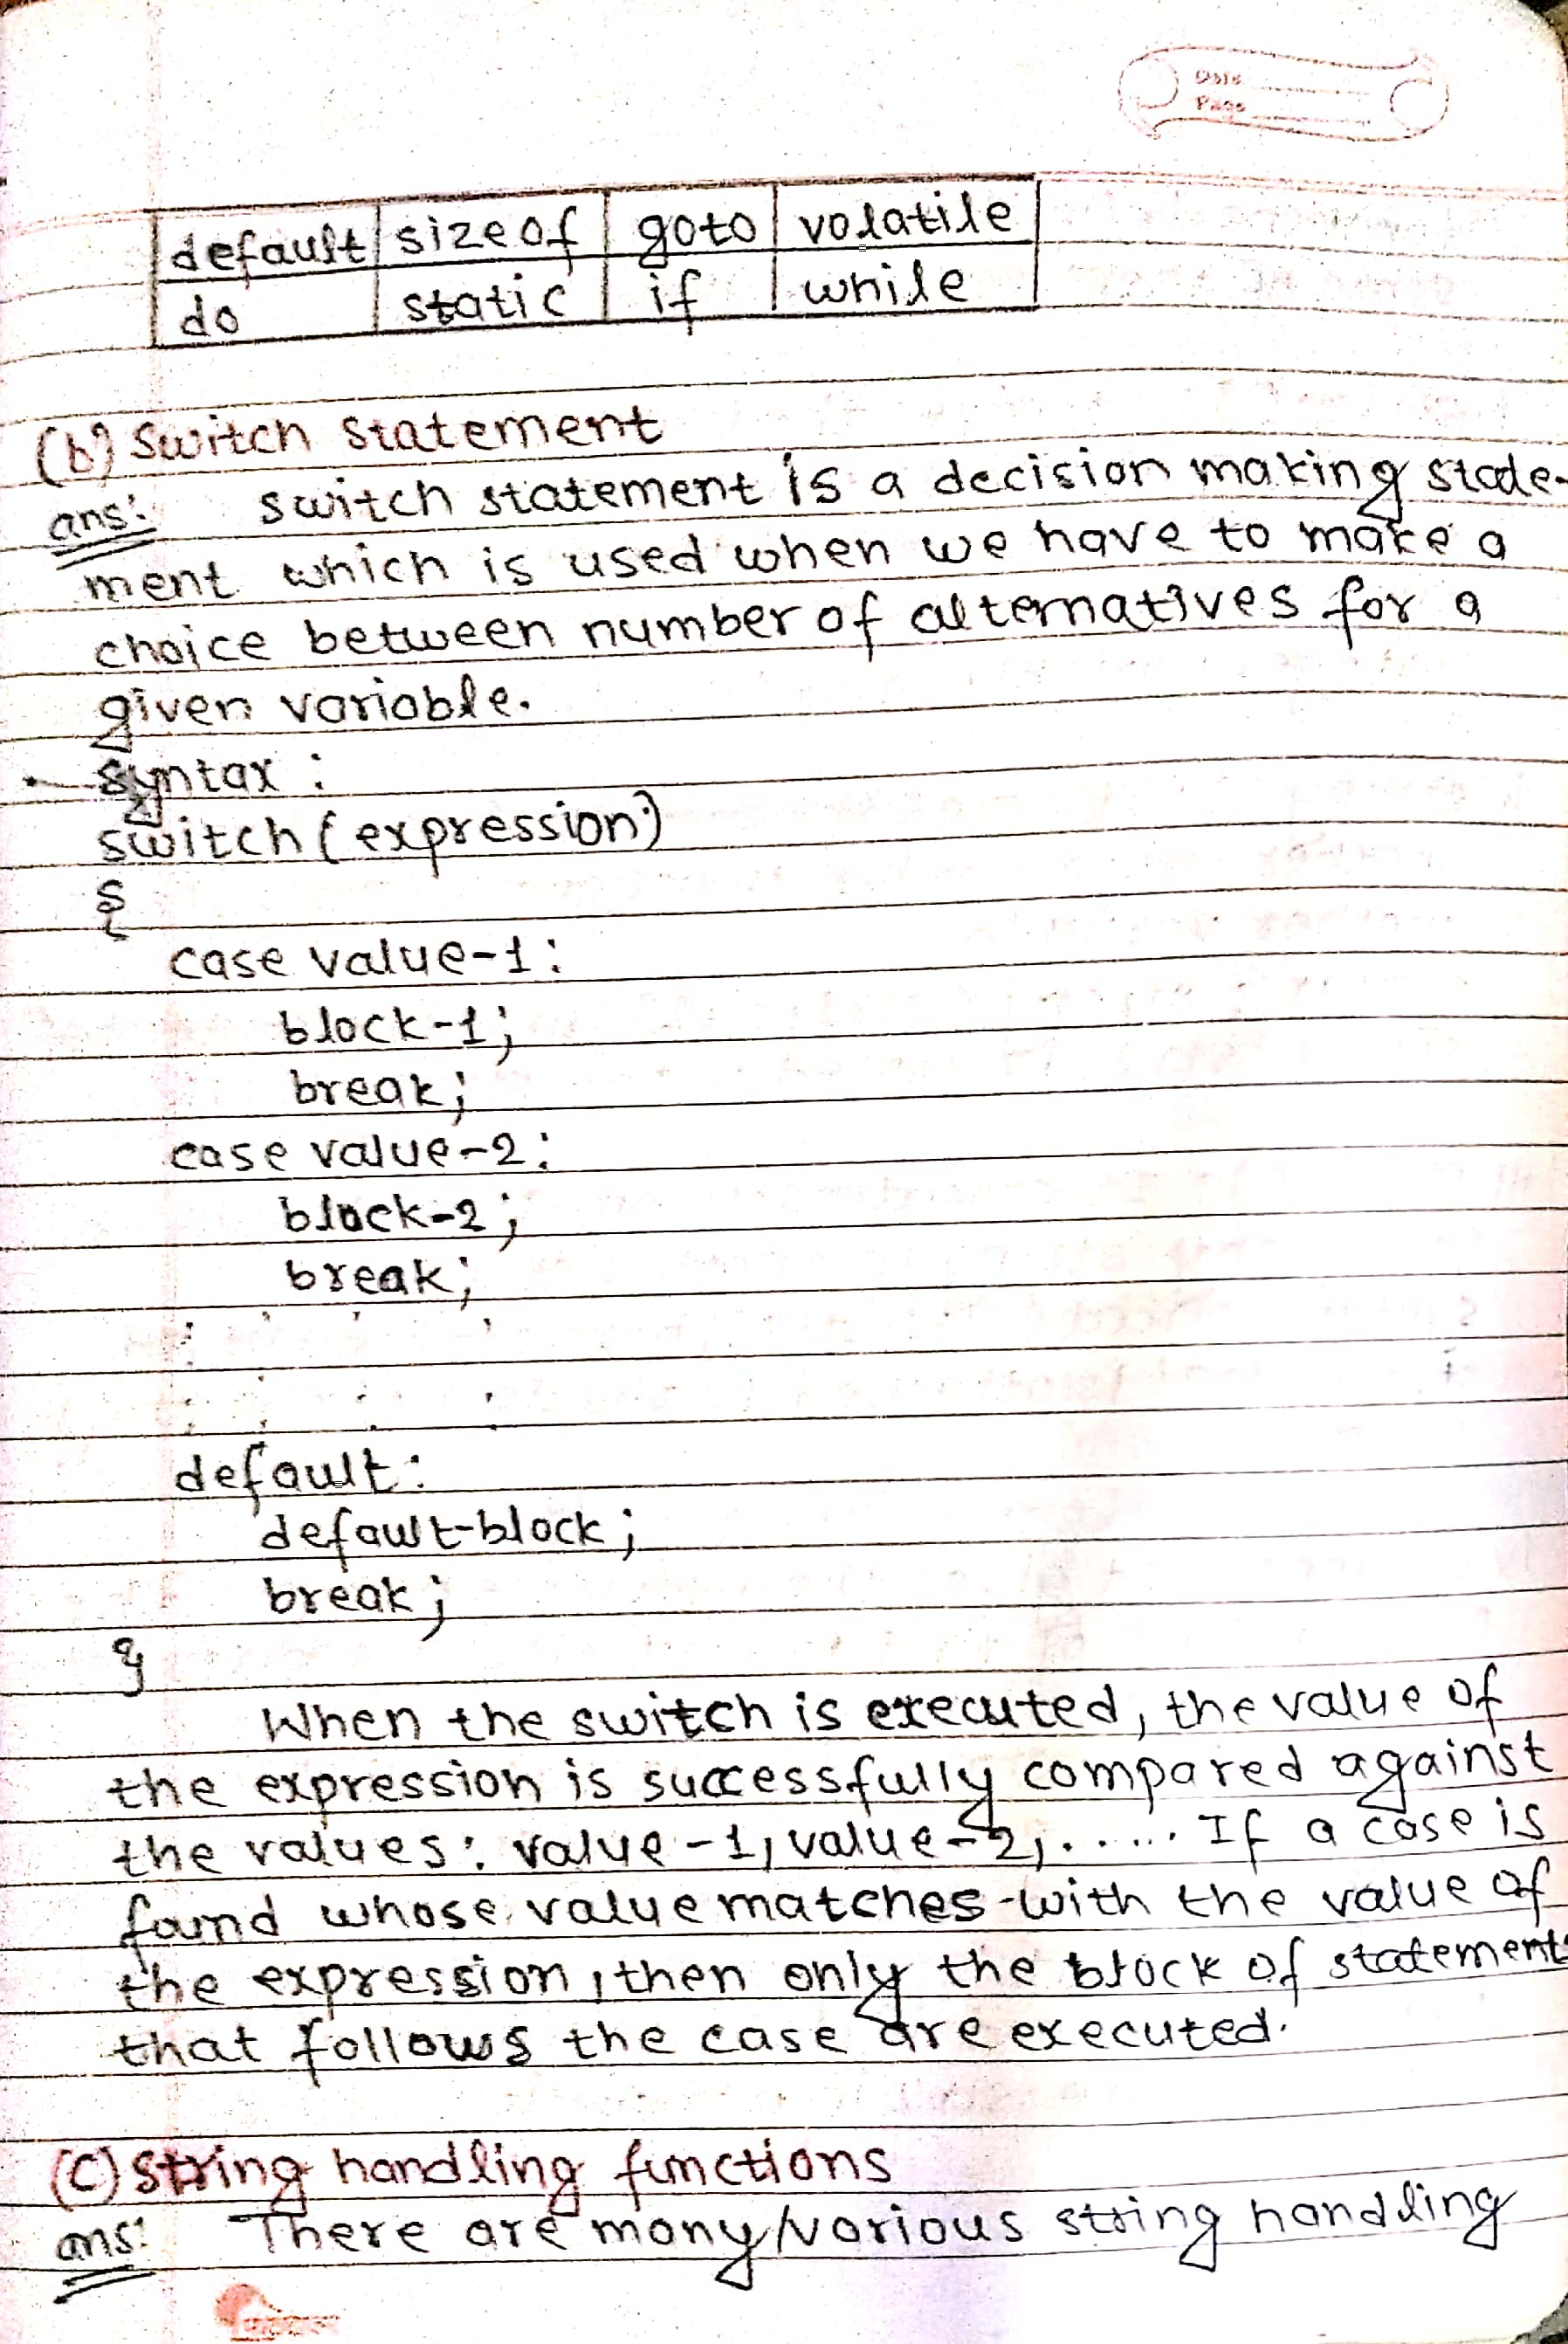 Date
Page
default sizeof goto volatile
do static if while
(b) Switch statement
ans: switch statement is a decision making state-
ment which is used when we have to make a
choice between number of alternatives for a
given variable.
syntax :
switch (expression)
{
case value-1:
block-1;
break;
case value-2:
block-2;
break;
default:
default-block;
break;
}
When the switch is executed, the value of
the expression is successfully compared against
the values: value-1, value-2, ..... If a case is
found whose value matches with the value of
the expression, then only the block of statements
that follows the case are executed.
(C) String handling functions
ans: There are many/various string handling